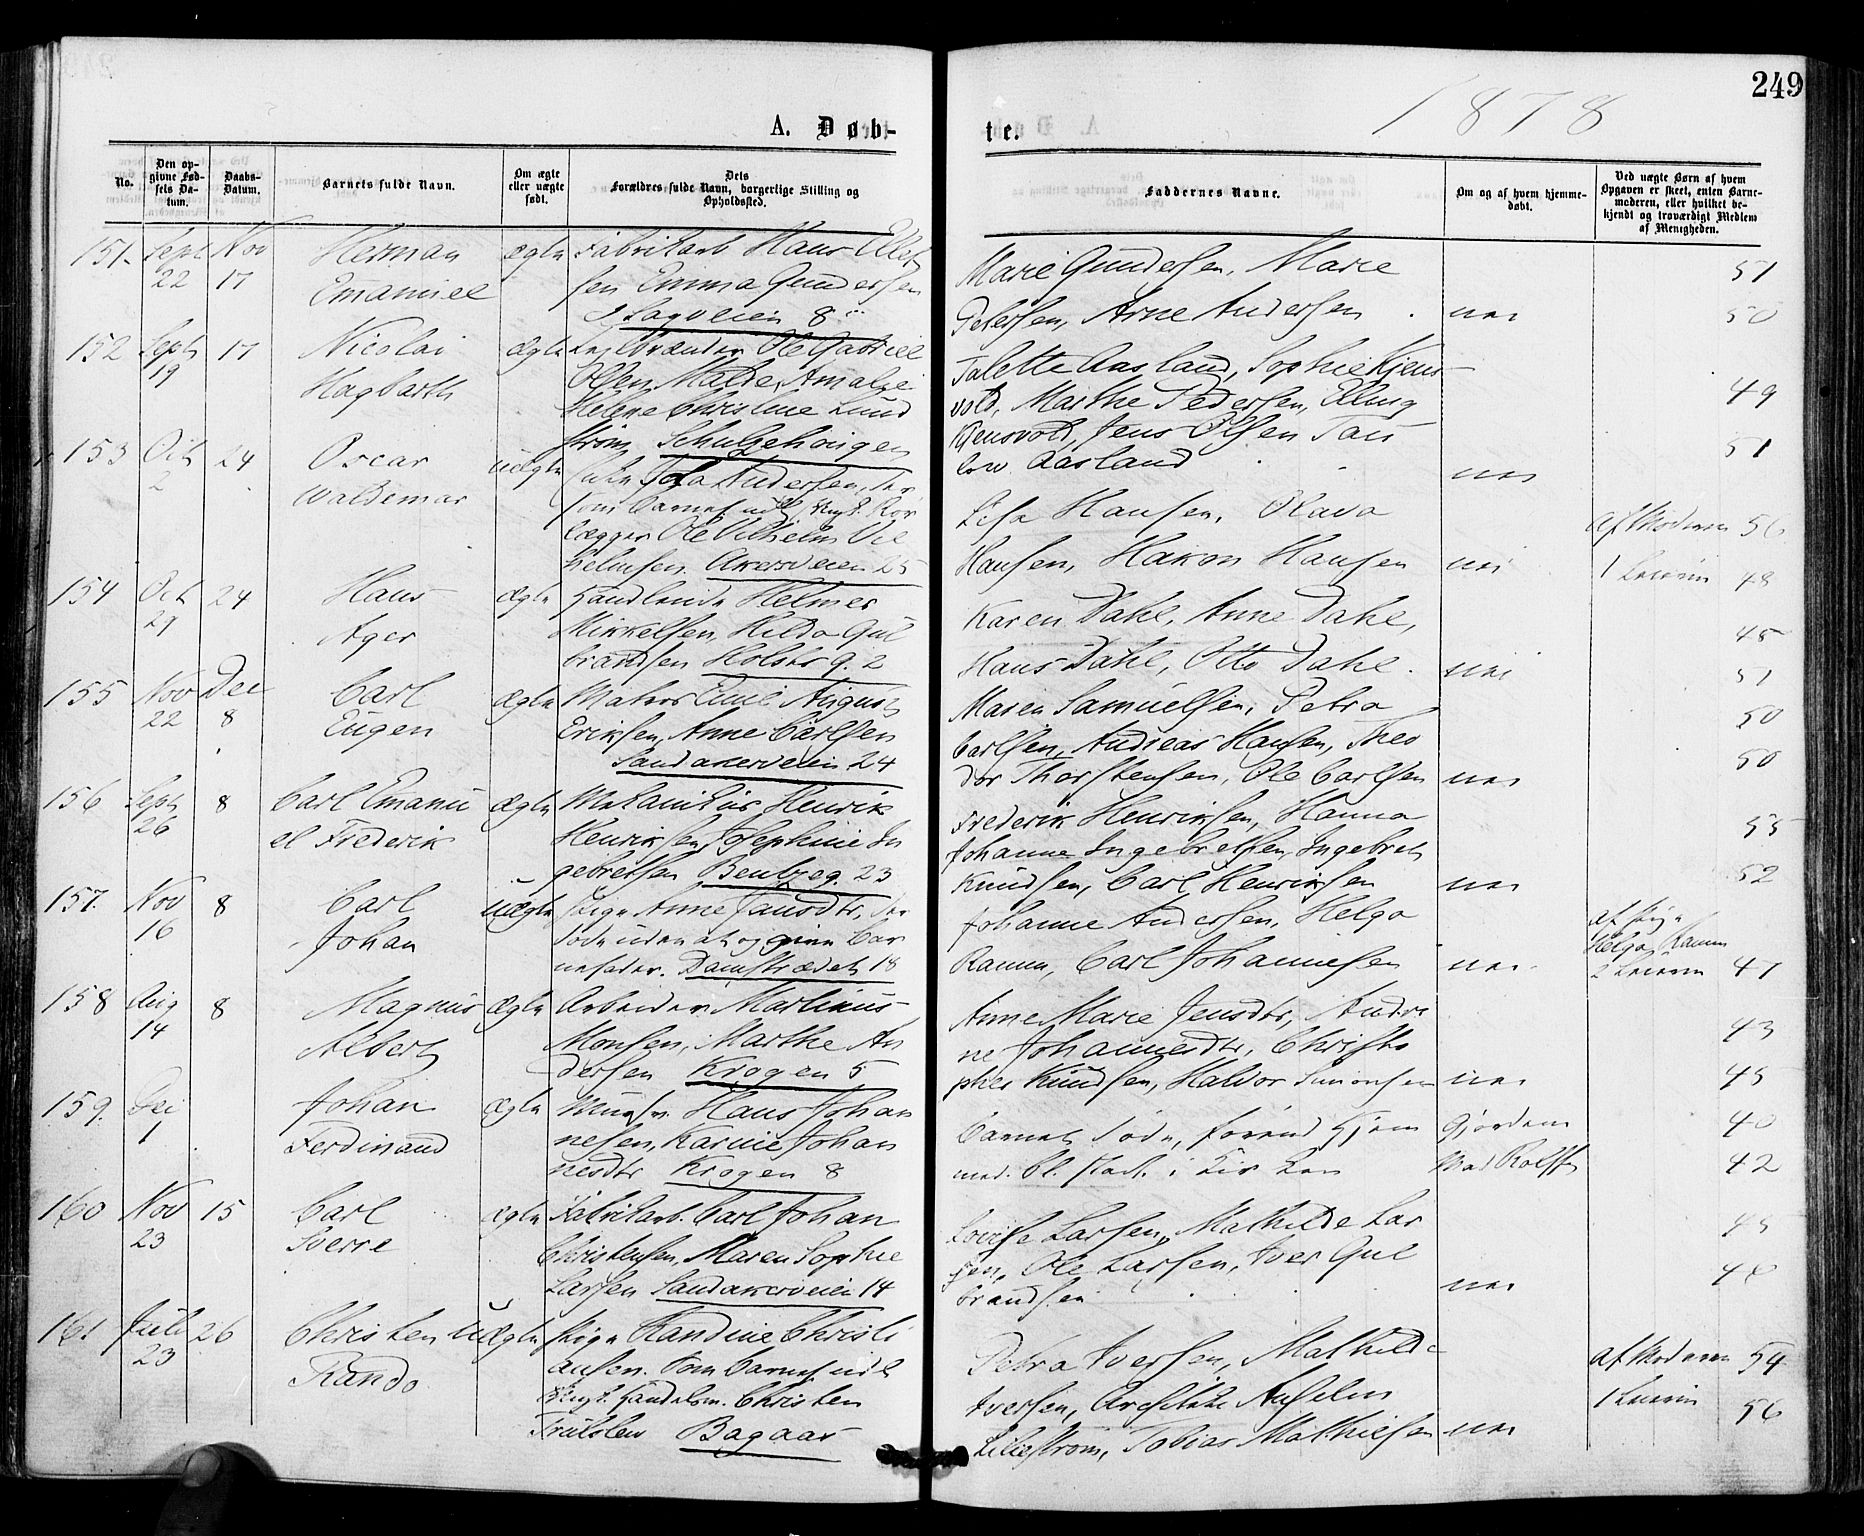 249
1878
A. Døb-
te.
No.
Den op-
givne Fød-
sels Da-
tum.
Daabs-
Datum.
Barnets fulde Navn.
Om ægte
eller uægte
født.
Dets
Forældres fulde Navn, borgerlige Stilling og
Opholdssted.
Faddernes Navne.
Om og af hvem hjemme-
døbt.
Ved uægte Børn af hvem
Opgaven er skeet, enten Barne-
moderen, eller hvilket be-
kjendt og troværdigt Medlem
af Menigheden.
151. Sept 22 Nov 17
Herman
Emanuel
ægte
Fabrikarb Hans Ellef
sen Emma Gundersen
Sagveien 8
Marie Gundersen, Marie
Petersen, Arne Andersen
nei
51
50
152 Sept 19 17
Nicolai
Hagbarth
ægte
Ole Gabriel
Olsen Malde, Amalie
Helene Christine Lund
strøm Schultzehougen
Talette Aasland, Sophie Kjens
vold, Marthe Pedersen, Elling
Kjensvold, Jens Olsen Tau
low Aasland
nei
49
51
153 Oct 2 24
Oscar
Waldemar
uægte
Andersen,
som Barnef. udl Ungk. Rør
lægger Ole Vilhelm Vil
helmsen. Akersveien 25
Lisa Hansen, Olava
Hansen, Hakon Hansen
nei
af Moderen
56
48
154 Oct 29 24
Hans
Ager
ægte
Handlende Helmer
Mikkelsen, Hilda Gul
brandsen Holsts g. 2
Karen Dahl, Anne Dahl,
Hans Dahl, Otto Dahl.
nei
45
51
155 Nov 22 Dec 8
Carl
Eugen
ægte
Matros Emil August
Eriksen, Anne Carlsen
Sandakerveien 24
Maren Samuelsen, Petra
Carlsen, Andreas Hansen, Theo
dor Thorstensen, Ole Carlsen
nei
50
50
156 Sept 26 8
Carl Emanu
el Frederik
ægte
Mekanikus Henrik
Henriksen, Josephine In
gebretsen Bentzeg. 23
Frederik Henriksen, Hanna
Johanne Ingebretsen, Ingebret
Knudsen, Carl Henriksen
nei
55
52
157. Nov 16 8
Carl
Johan
uægte
Pige Anne Jansdtr,
døde uden at opgive Bar
nefader. Damstrædet 18
Johanne Andersen, Helga
Ramm, Carl Johannesen
nei
af Pige
Helga Ramm
47
158 Aug 14 8
Magnus
Albert
ægte
Arbeider Martinus
Monsen, Marthe An
dersen Krogen 5
Anne Marie Jensdtr, Andri
ne Johannesdtr, Christo
pher Knudsen, Halvor Simonsen
nei
43
45
159. Dec 1
Johan
Ferdinand
ægte
Murer Hans Johan
nesen, Karine Johan
nesdtr Krogen 8
Barnet døde, førend Hjem
med. bl. stadf. i Kirken
Gjordem
Mad Rolffs
40
42
160 Nov 23 15
Carl
Sverre
ægte
Fabrikarb. Carl Johan
Christensen, Maren Sophie
Larsen Sandakerveien 14
Lovise Larsen, Mathilde Lar
sen, Ole Larsen, Iver Gul
brandsen
nei
45
161 Juli 23 26
Christen
Rando
uægte
Pige Randine Christi
ansen. Som Barnef. udl
Ungk. Handelsm. Christen
Trulsen Bagaas
Petra Iversen, Mathilde
Iversen, Anselm
Liliestrøm, Tobias Mathiesen
nei
af Moderen
54
56